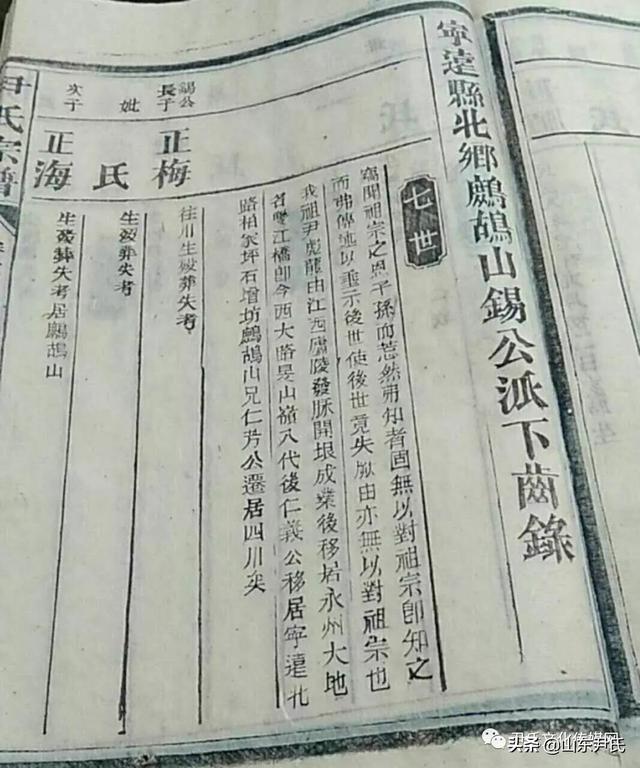 寧遠縣北鄉鷓鴣山錫公派下齒錄
七世
竊聞祖宗之恩子孫而惹然弗知者固無以對祖宗卽知之
而弗傳述以垂示後世使後世竟失厥由亦無以對祖宗也
我祖尹彪龍由江西廬陵發脉開垠成業後移居永州大地
名雙江橋卽今西大路旻山嶺八代後仁義公移居寧遠北
路柏家坪石增坊鷓鴣山兄仁芳公遷居四川矣
錫公
長子
正梅
往川生歿葬失考
妣
氏
生歿葬失考
次子
正海
生歿葬失考居鷓鴣山
尹氏宗譜
尹氏文化传媒网
头条@山东尹氏